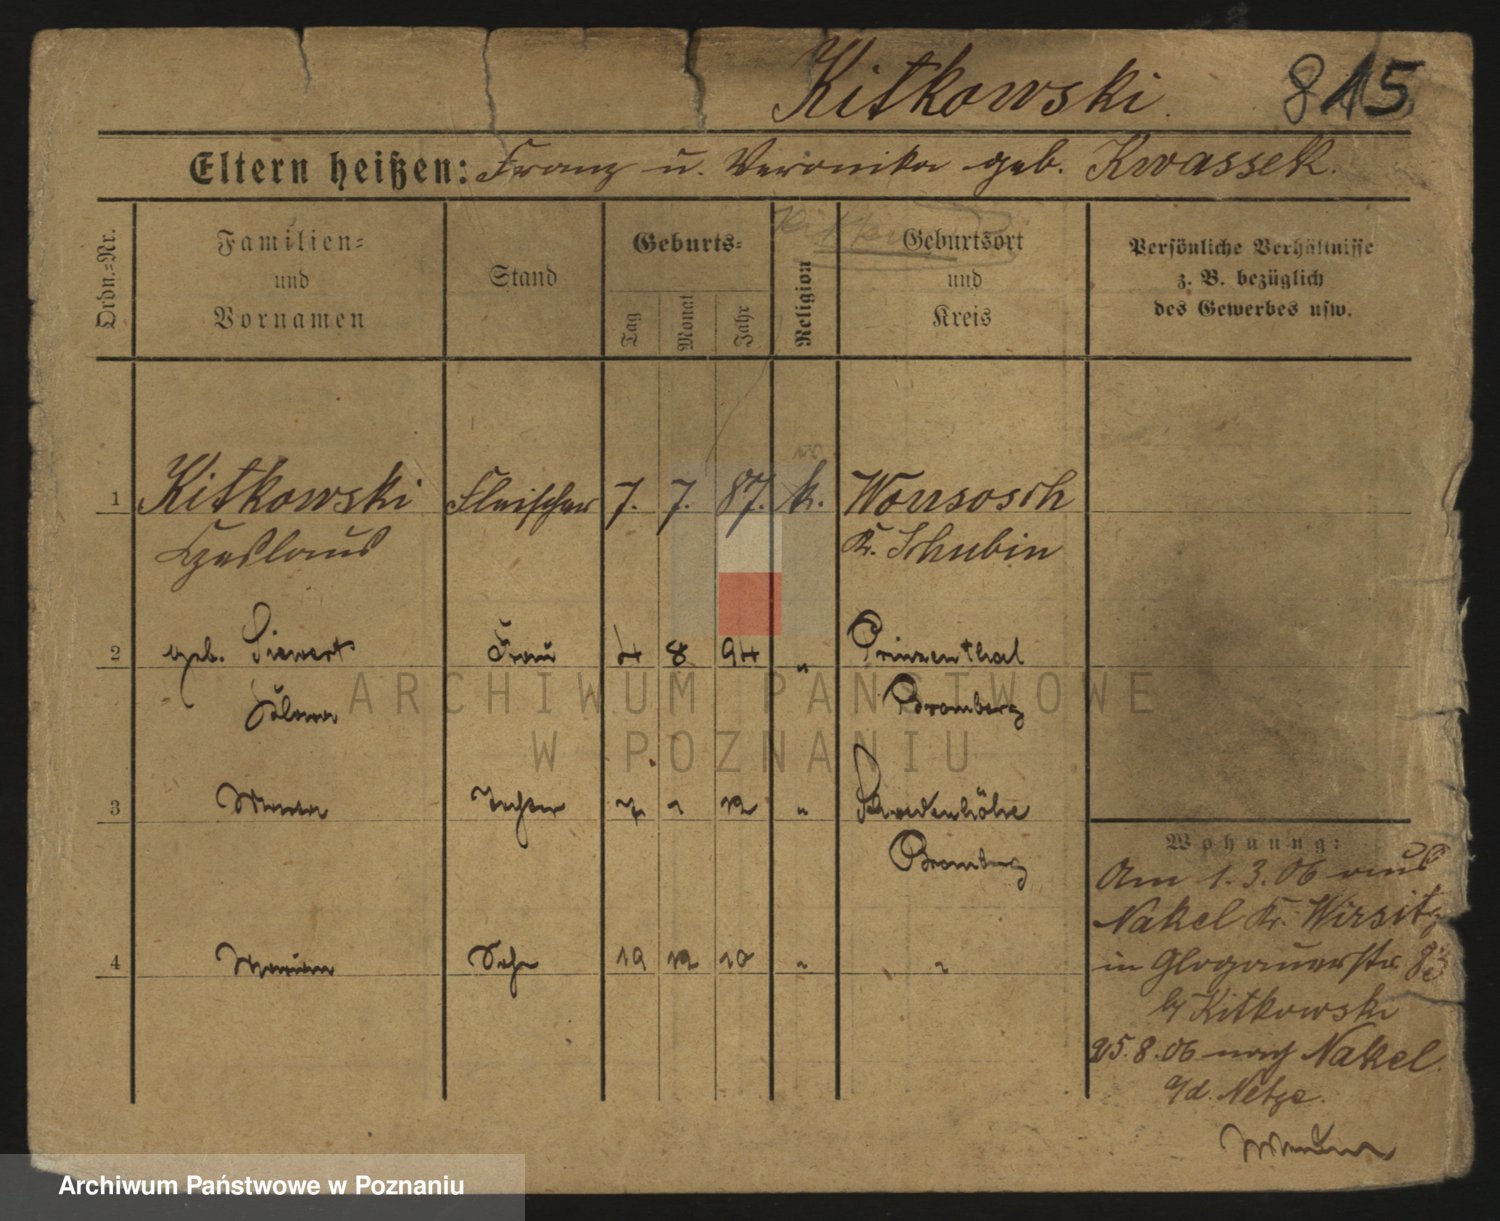 Kitkowski. 815
Eltern heißen: Franz u. Veronika geb. Kwassek.
Ordn.-Nr.
Familien-
und
Vornamen
Stand
Geburts-
Tag
Monat
Jahr
Religion
Geburtsort
und
Kreis
Persönliche Verhältnisse
z. B. bezüglich
des Gewerbes usw.
1 Kitkowski Fleischer 7. 7. 87. k. Wonsosch
Czeslaus Kr. Schubin
2 geb. Siewert Frau 4 8 94 " Prinzenthal
Bromberg
3 Maria Tochter 12 " Schwedenhöhe
Bromberg
4 Marian Sohn 19 12 " "
Wohnung:
Am 1.3.06 aus
Nakel Kr. Wirsitz
in Glogauerstr. 83
b/ Kitkowski
25.8.06 nach Nakel
a/d. Netze.
ARCHIWUM PAŃSTWOWE
W POZNANIU
Archiwum Państwowe w Poznaniu